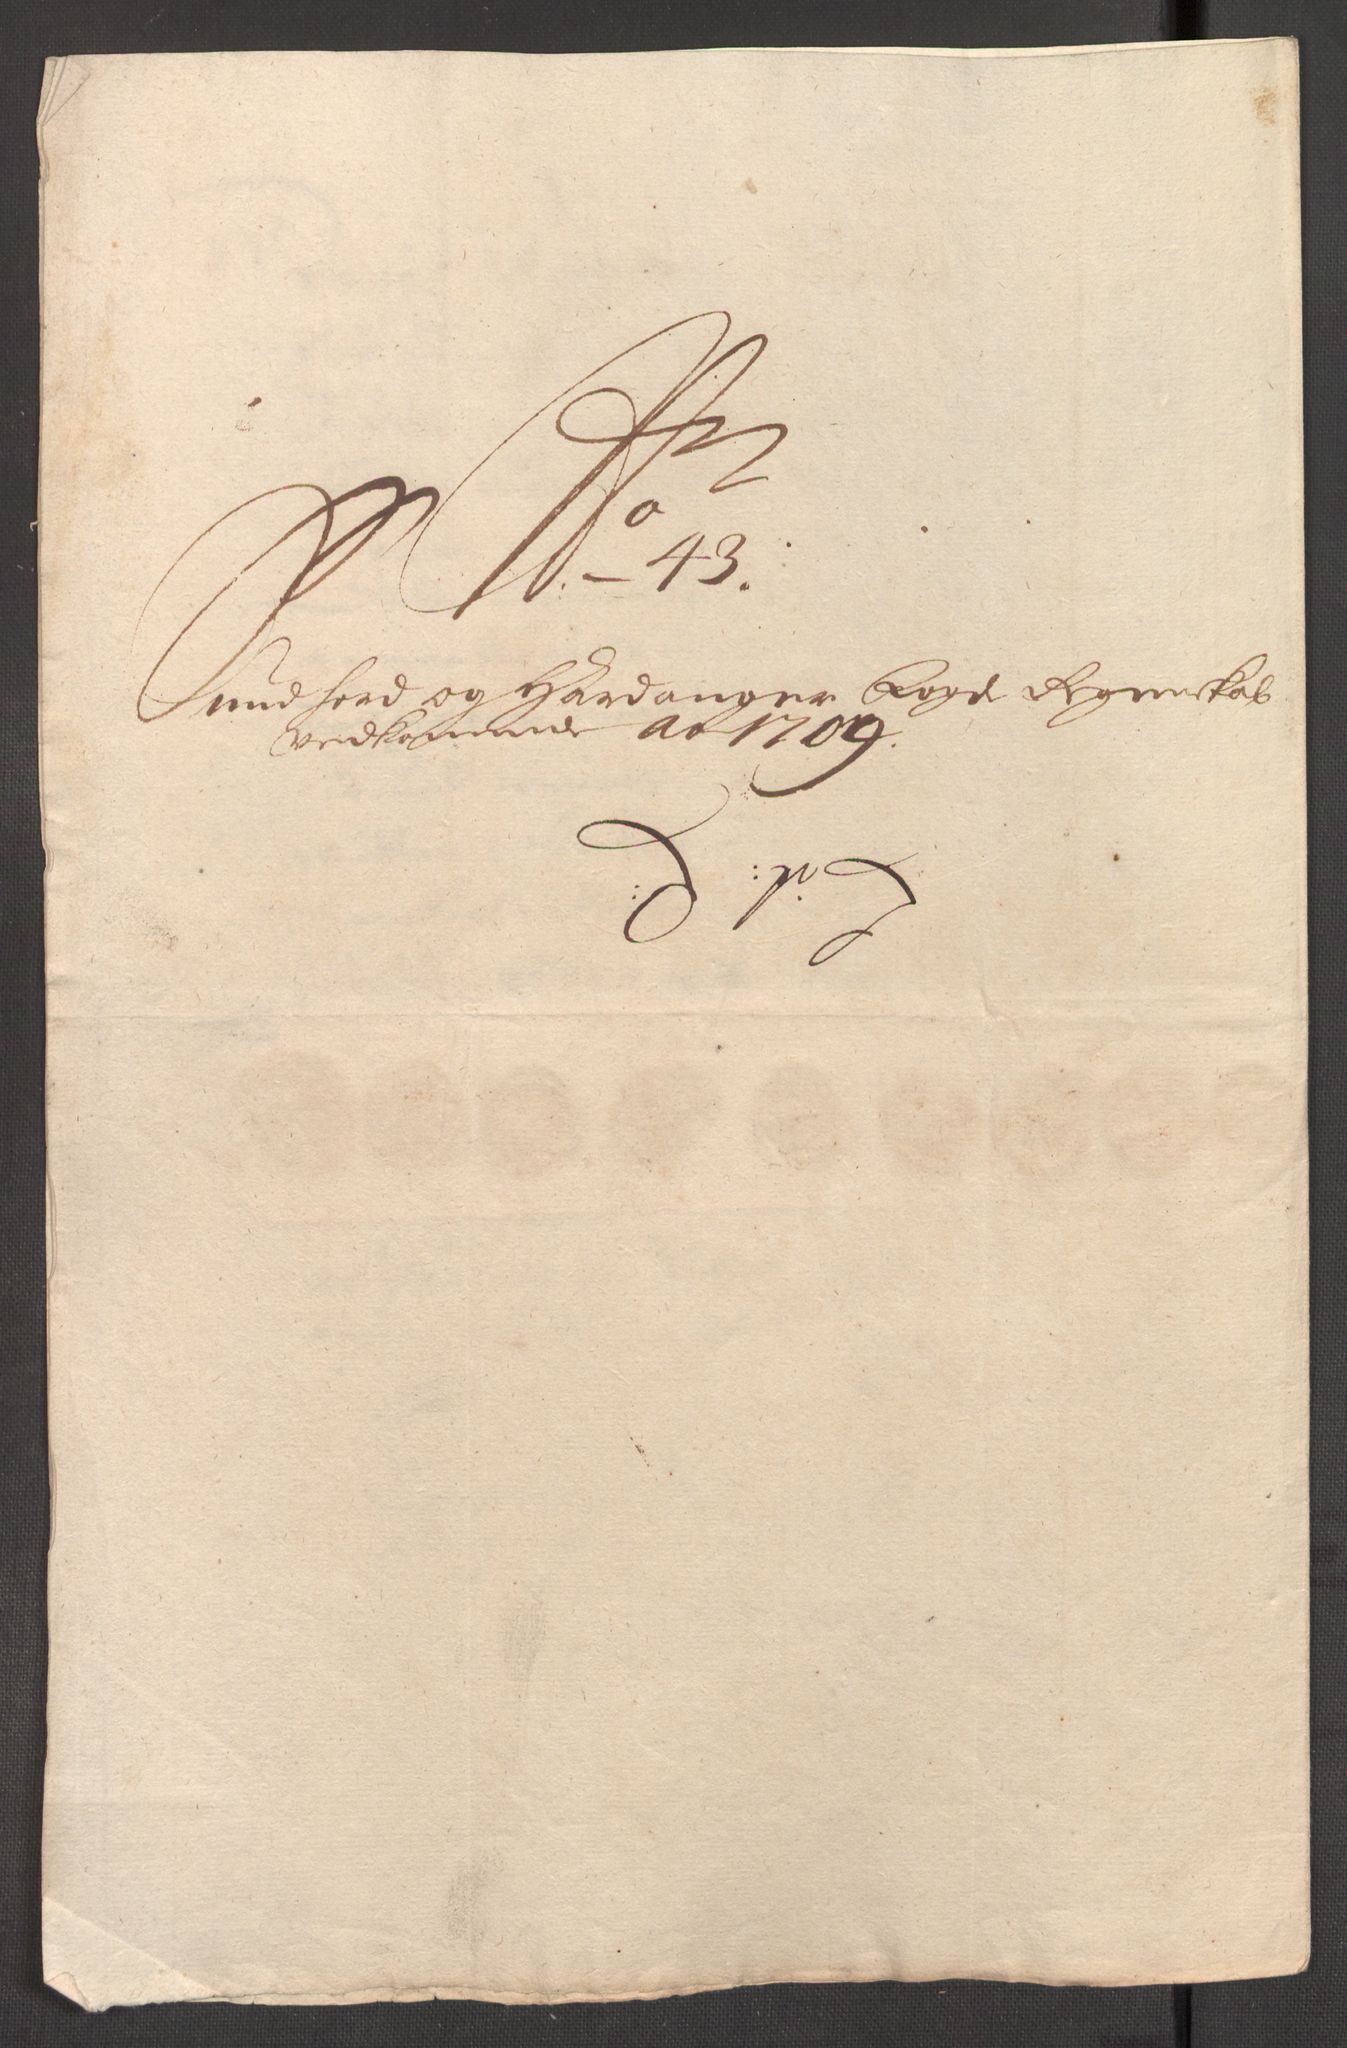 No
43.
Sundhord og Hardanger Fogd Regenskab
vedkommende Ao 1709.